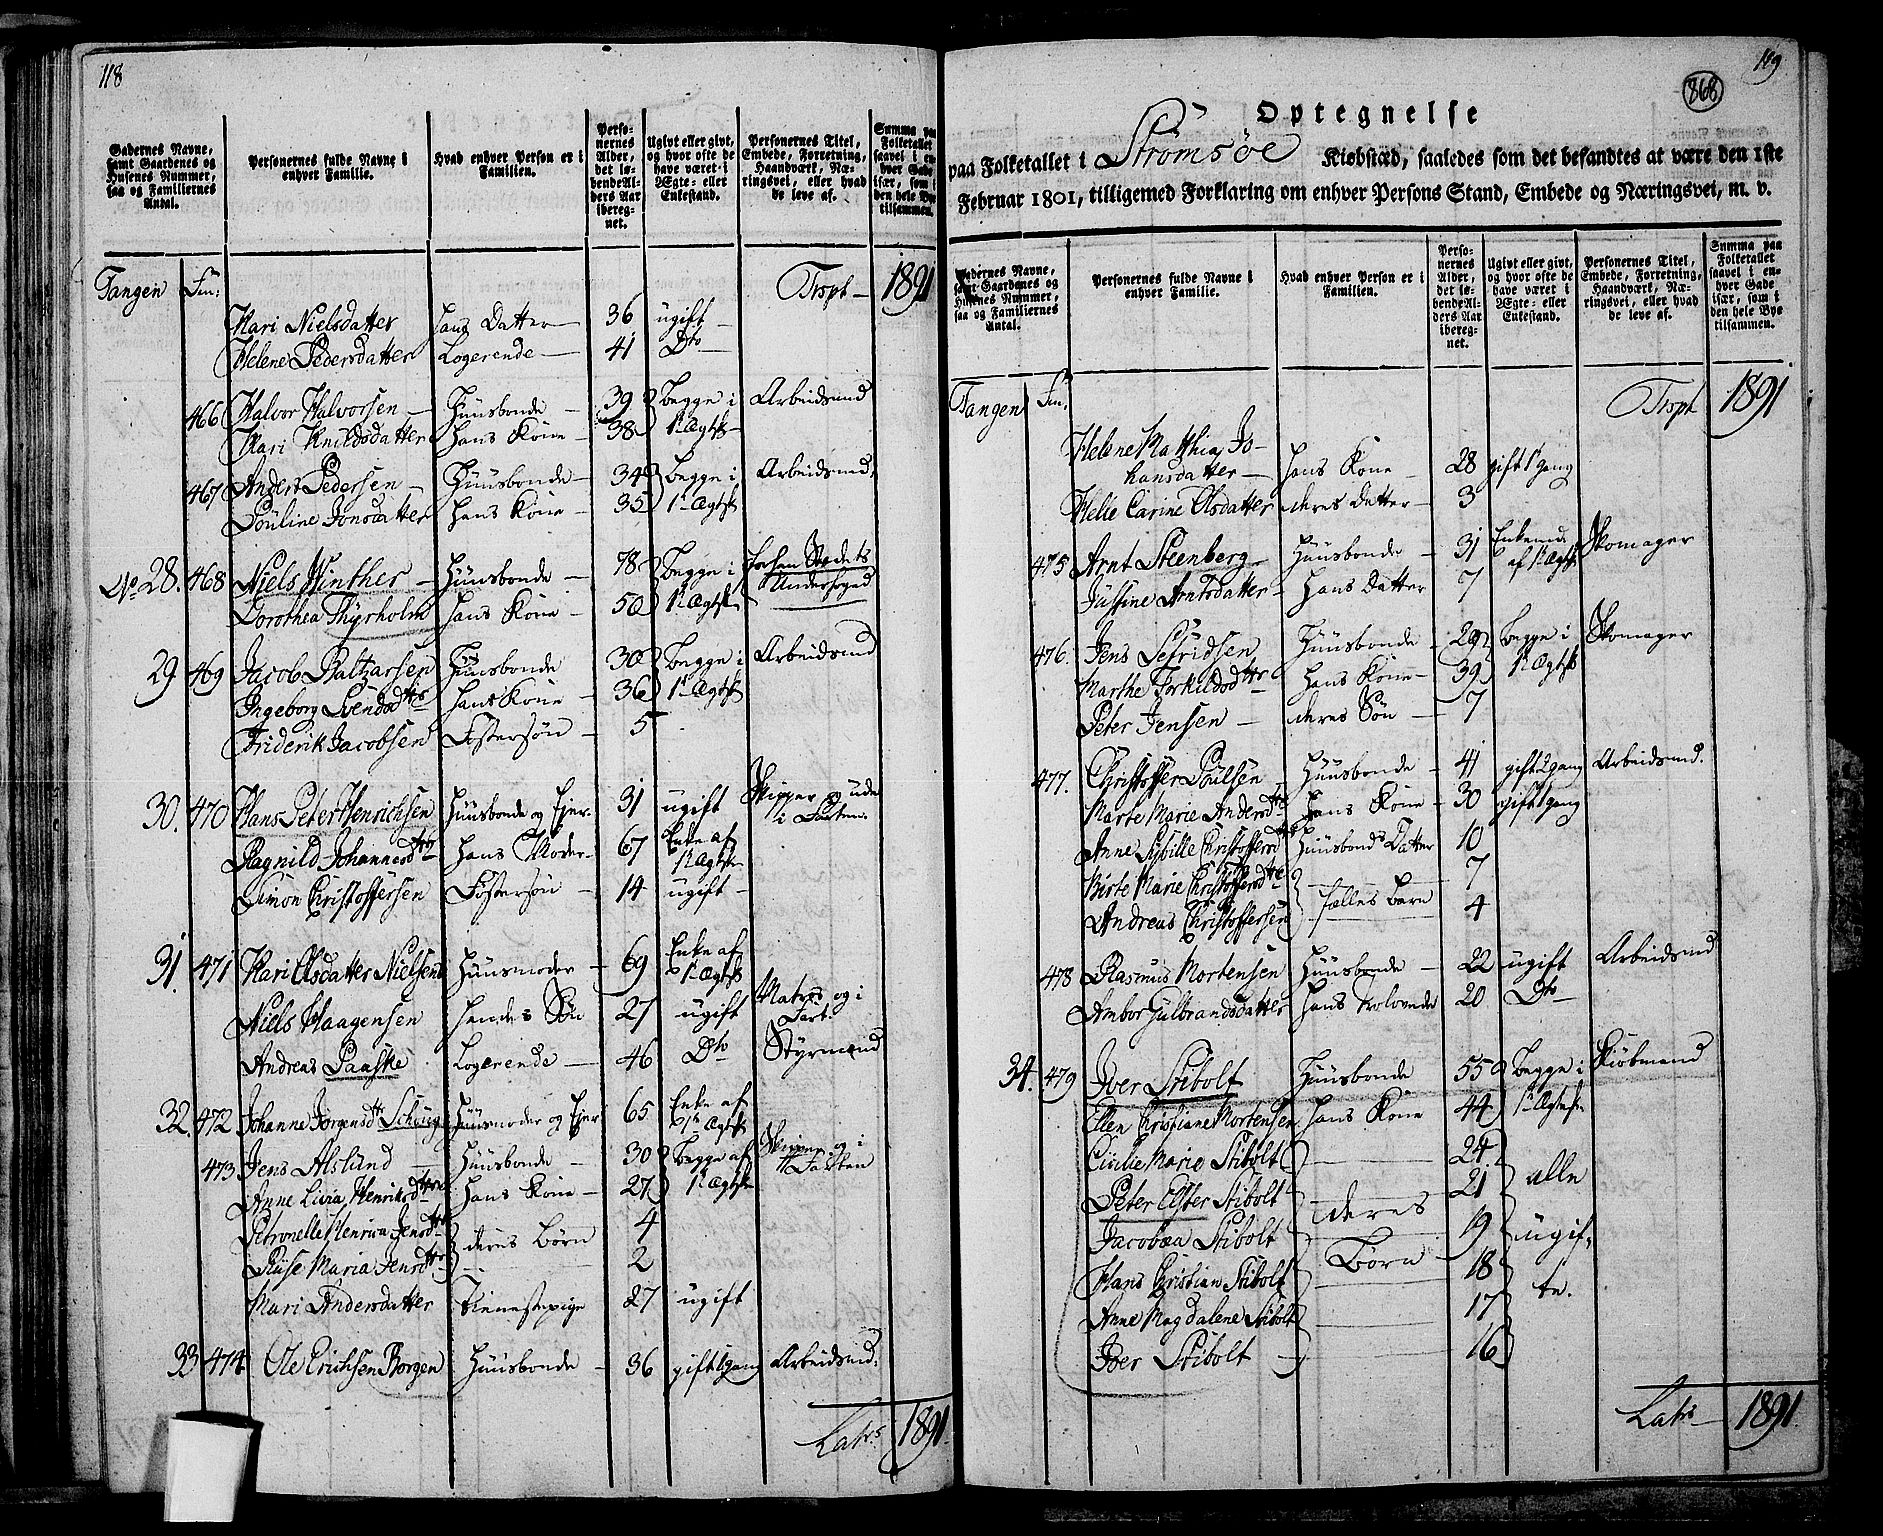 118
Gadernes Navne, samt Gaardenes og Husenes Nummer, saa og Familiernes Antal.
Personernes fulde Navne i enhver Familie.
Hvad enhver Person er i Familien.
Personernes Alder, det løbende Alders Aar iberegnet.
Ugivt eller givt, og hvor ofte de have været i Ægte- eller Enkestand.
Personernes Titel, Embede, Forretning, Haandværk, Næringsvei, eller hvad de leve af.
Summa paa Folketallet saavel i enhver Gade især, som i den hele Bye tilsammen.
Tangen Fm: Trspt — 1891
Mari Nielsdatter hans Datter 36 ugift
Helene Pedersdatter Logerende 41 Dto
466 Halvor Halvorsen Huusbonde 39 begge i Arbeidsmd
Mari Knudsdatter hans Kone 38 1te Ægtsk
467 Anders Pedersen Huusbonde 34 begge i Arbeidsmd.
Pouline Jonsdatter hans Kone 35 1te Ægtsk
No 28. 468 Niels Winther Huusbonde 78 begge i
Dorothea Thyrholm hans Kone 50 1te Ægtsk
29 469 Jacob Baltzarsen Huusbonde 30 begge i Arbeidsmd
Ingeborg Svendsdtr hans Kone 36 1te Ægtsk
Friderik Jacobsen Fostersøn 5
30. 470 Hans Peter Henrichsen Huusbonde og Ejer 31 ugift Skipper ude i Farten
Ragnild Johannesdtr hans Moder 67 Enke af 1te Ægtsk
Simon Christoffersen Fostersøn 14 ugift
31. 471 Kari Olsdatter Nielsens Huusmoder 69 Enke af 1te Ægtsk
Niels Haagensen hendes Søn 27 ugift Matros og i Fart.
Andreas Paaske Logerende 46 Dto Styrmand
32. 472 Johanne Jørgensdtr Schoug Huusmoder og Ejer 65 Enke af 1te Ægtsk
473 Jens Alslund Huusbonde 30 begge af Skipper og i Farten
Anne Livia Henriksdtr hans Kone 27 1te Ægtsk
Petronelle Henrica Jensdtr deres Børn 4
Ruse Maria Jensdtr 2
Mari Andersdatter Tienestepige 27 ugift
33 474 Ole Erichsen Borgen Huusbonde 36 gift 1gang Arbeidsmd.
Latrs 1891.
119
868
Optegnelse
paa Folketallet i Strømsøe Kiøbstæd, saaledes som det befandtes at være den 1ste
Februar 1801, tilligemed Forklaring om enhver Persons Stand, Embede og Næringsvei, m. v.
Gadernes Navne, samt Gaardenes og Husenes Nummer, saa og Familiernes Antal.
Personernes fulde Navne i enhver Familie.
Hvad enhver Person er i Familien.
Personernes Alder, det løbende Alders Aar iberegnet.
Ugivt eller givt, og hvor ofte de have været i Ægte- eller Enkestand.
Personernes Titel, Embede, Forretning, Haandværk, Næringsvei, eller hvad de leve af.
Summa paa Folketallet saavel i enhver Gade især, som i den hele Bye tilsammen.
Tangen Fm. Trspt 1891
Helene Matthia Jo-
hansdatter hans Kone 28 gift 1 gang
Helie Carine Olsdatter deres Datter 3
475 Arnt Steenberg Huusbonde 31 Enkemd af 1te Ægtsk Skomager
Jussine Arntsdatter hans Datter 7
476. Jens Sefridsen Huusbonde 29 begge i Skomager
Marthe Torkildsdtr hans Kone 39 1te Ægtsk
Peter Jensen deres Søn 7
477. Christoffer Poulsen Huusbonde 41 gift 2gang Arbeidsmd.
Marte Marie Andersdtr hans Kone 30 gift 1gang
Anne Sybille Christoffersdtr Huusbonds Datter 10
Birte Marie Christoffersdtr 7
Andreas Christoffersen fælles Børn 4
478 Rasmus Mortensen Huusbonde 22 ugift Arbeidsmd
Ambor Gulbrandsdatter hans Trolovede 20 Dto
34. 479 Iver Stibolt Huusbonde 55 begge i Kiøbmand
Ellen Christiane Mortensen hans Kone 44 1te Ægtsk
Cicilie Marie Stibolt 24 alle
Peter Elster Stibolt 21
Jacobæa Stibolt deres 19 ugif-
Hans Christian Stibolt Børn 18
Anne Magdalene Stibolt 17 te.
Iver Stibolt 16
Latrs 1891.